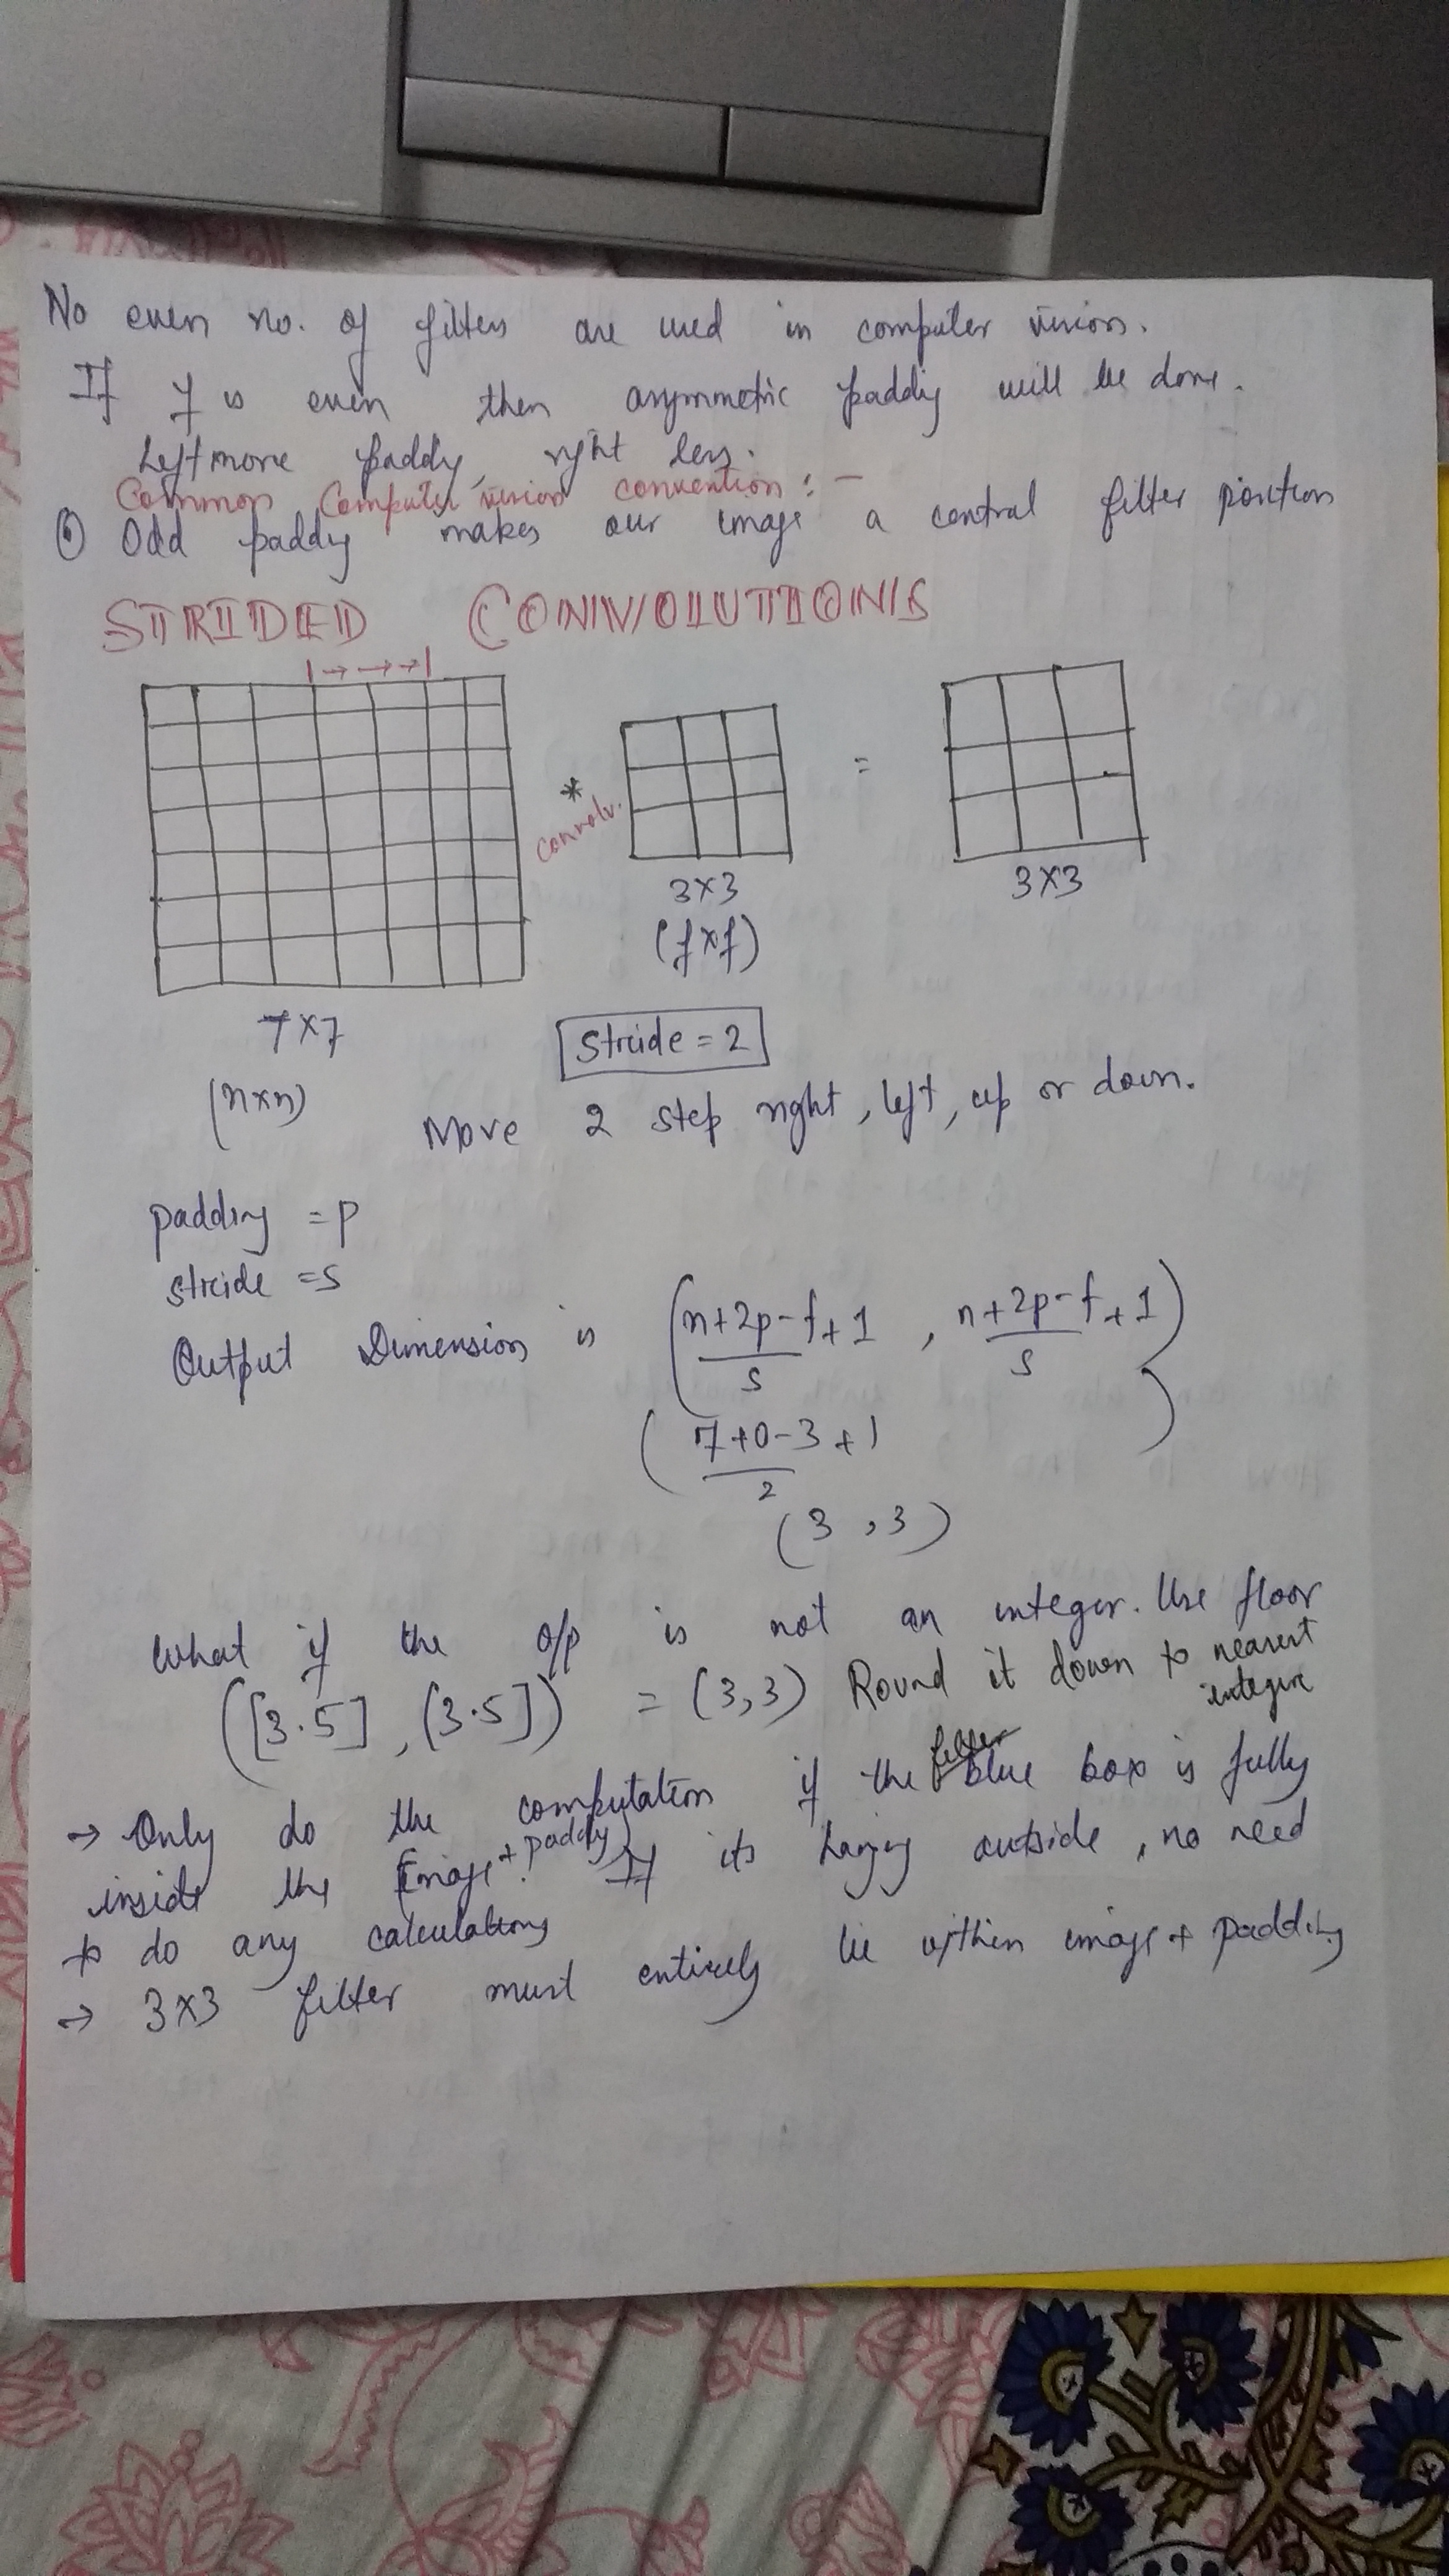 No even no. of filters are used in computer vision.
If f is even then asymmetric padding will be done.
Left more padding, right less.
Common Computer vision convention : -
Odd padding makes our image a central filter position
STRIDED CONVOLUTIONS
*
convolv.
=
3×3
3×3
(f×f)
7×7
Stride = 2
(n×n)
Move 2 step right, left, up or down.
padding = p
stride = s
Output Dimension is ( (n+2p-f)/s + 1 , (n+2p-f)/s + 1 )
( (7+0-3)/2 + 1 )
(3 , 3)
What if the o/p is not an integer. Use floor
([3.5] , (3.5]) = (3,3) Round it down to nearest
integer
filter
→ Only do the computation if the blue box is fully
inside the image + padding. If its hanging outside, no need
to do any calculations
→ 3×3 filter must entirely lie within image + padding